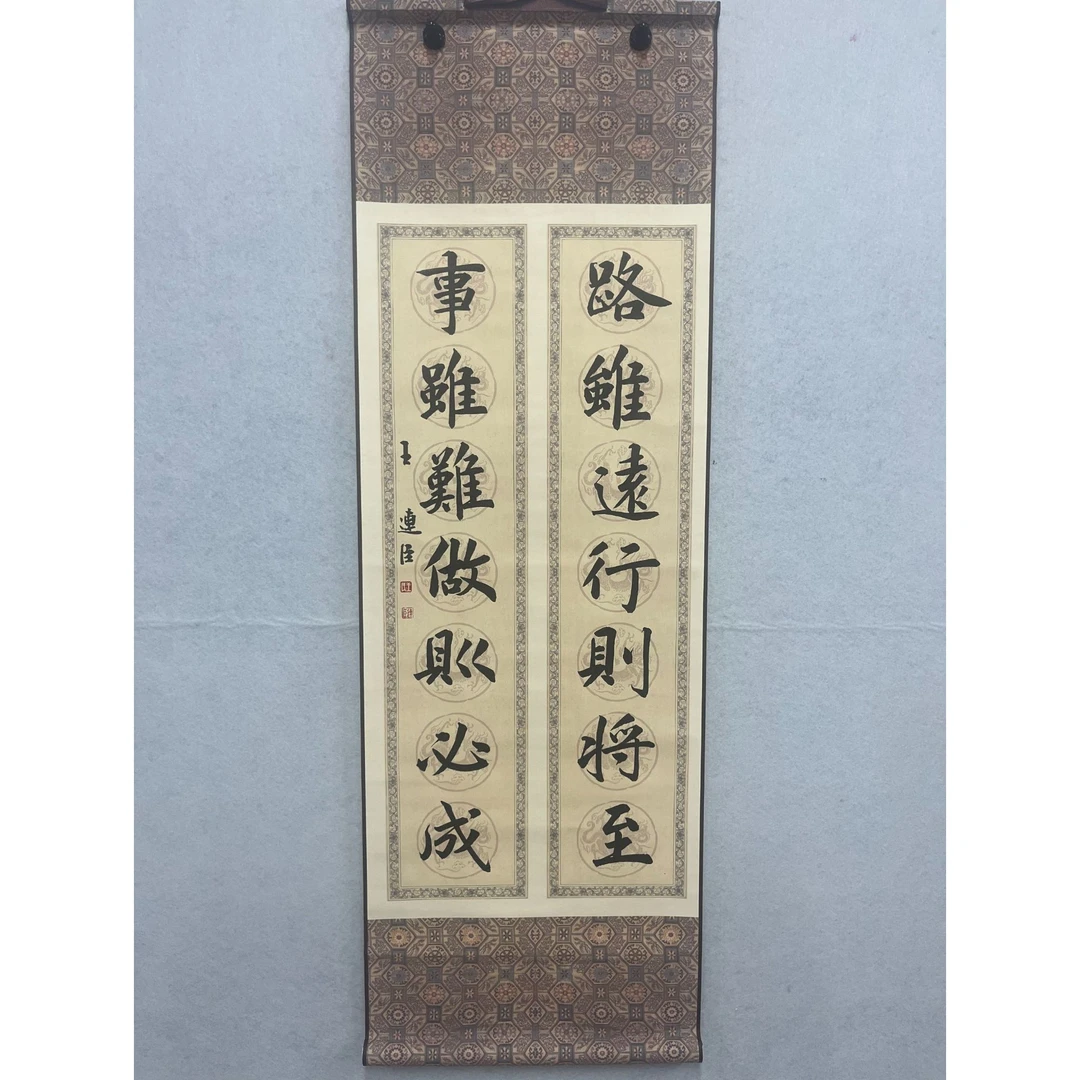 路雖遠行則将至
事雖難做則必成
王連臣